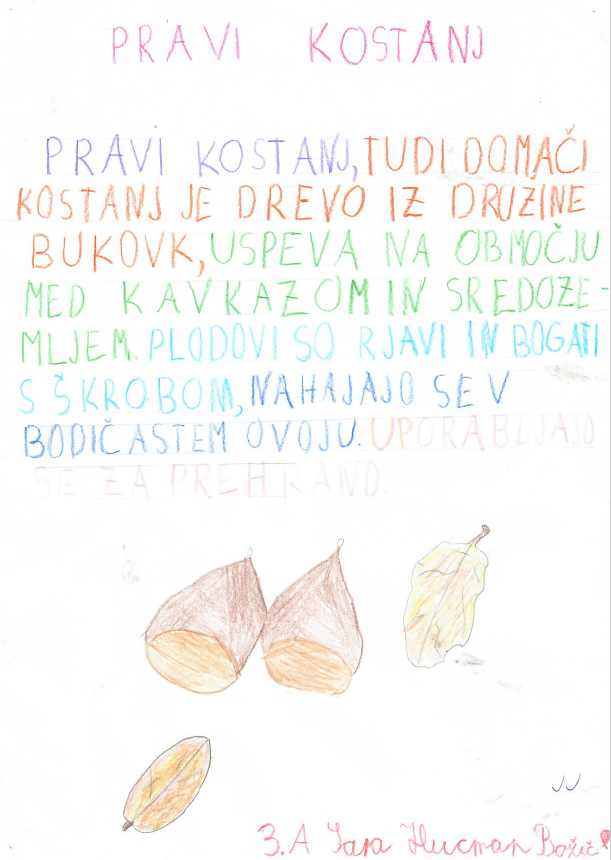 PRAVI KOSTANJ
PRAVI KOSTANJ, TUDI DOMAČI
KOSTANJ JE DREVO IZ DRUZINE
BUKOVK, USPEVA NA OBMOČJU
MED KAVKAZOM IN SREDOZE-
MLJEM. PLODOVI SO RJAVI IN BOGATI
S ŠKROBOM, NAHAJAJO SE V
BODIČASTEM OVOJU. UPORABLJAJO
SE ZA PREHRANO.
3.A Sara Hucman Božič